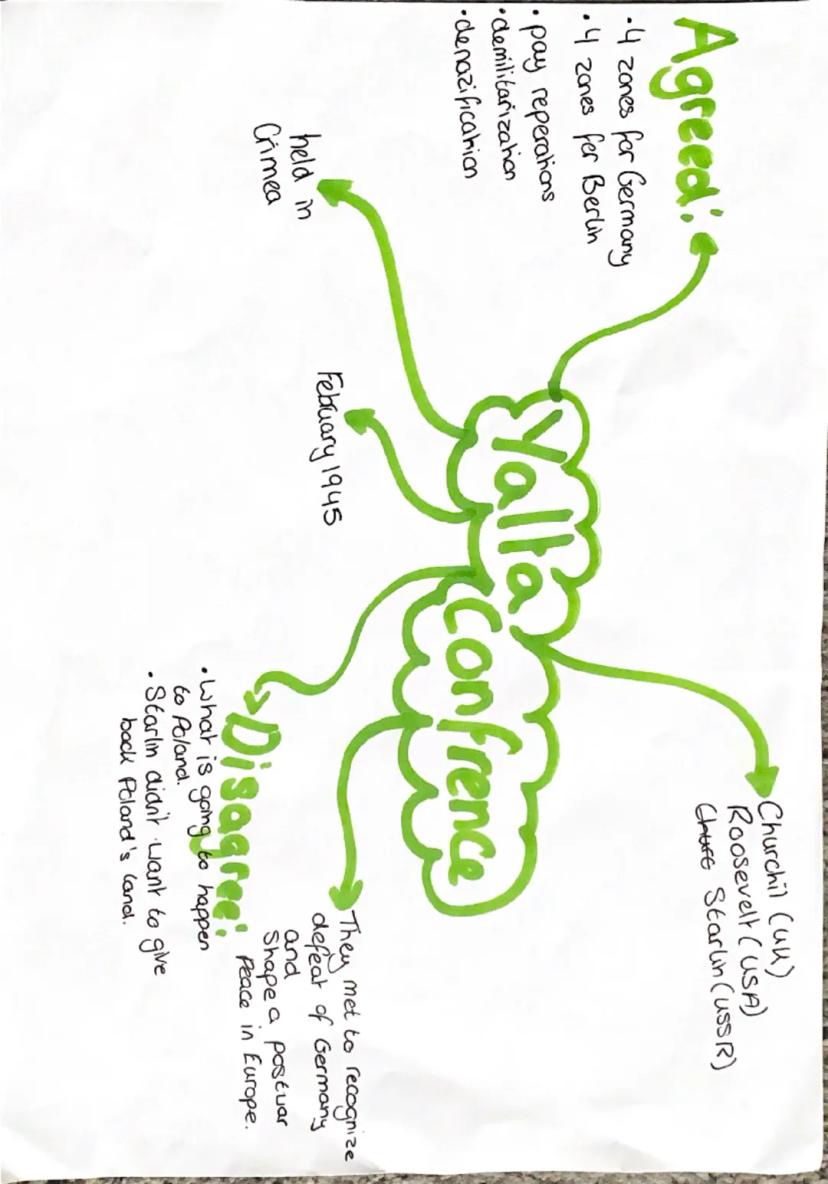 Agreed:
• 4 zones for Germany
• 4 zones for Berlin
• pay reperations
• demilitarization
• denazification
held in
Crimea
February 1945
Yalta
Confrence
Churchil (UK)
Roosevelt (USA)
Starlin (USSR)
They met to recognize
defeat of Germany
and
Shape a postwar
Peace in Europe.
Disagree:
• What is going to happen
to Poland.
• Starlin didn't want to give
back Poland's land.